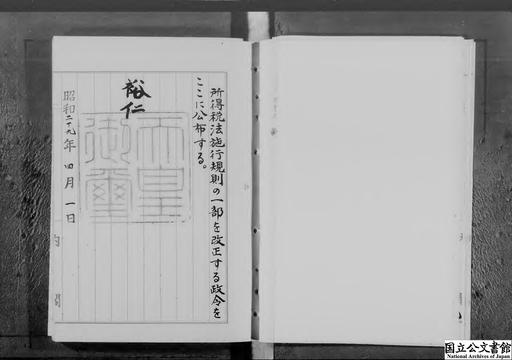 所得税法施行規則の一部を改正する政令を
ここに公布する。
裕仁
天皇
御璽
昭和二十九年四月一日
内閣
国立公文書館
National Archives of Japan